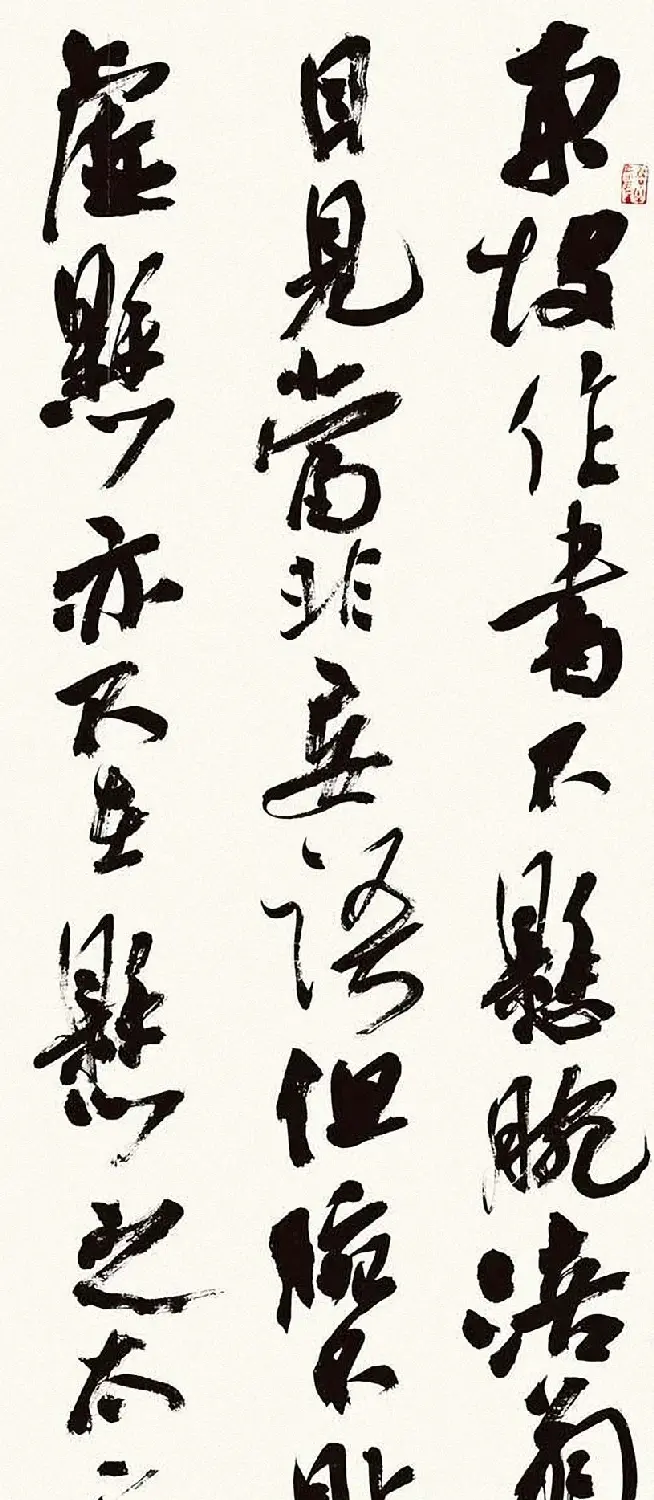 東坡作書不懸腕涪翁
目見當非妄語但腕不
虛懸亦不在懸之太